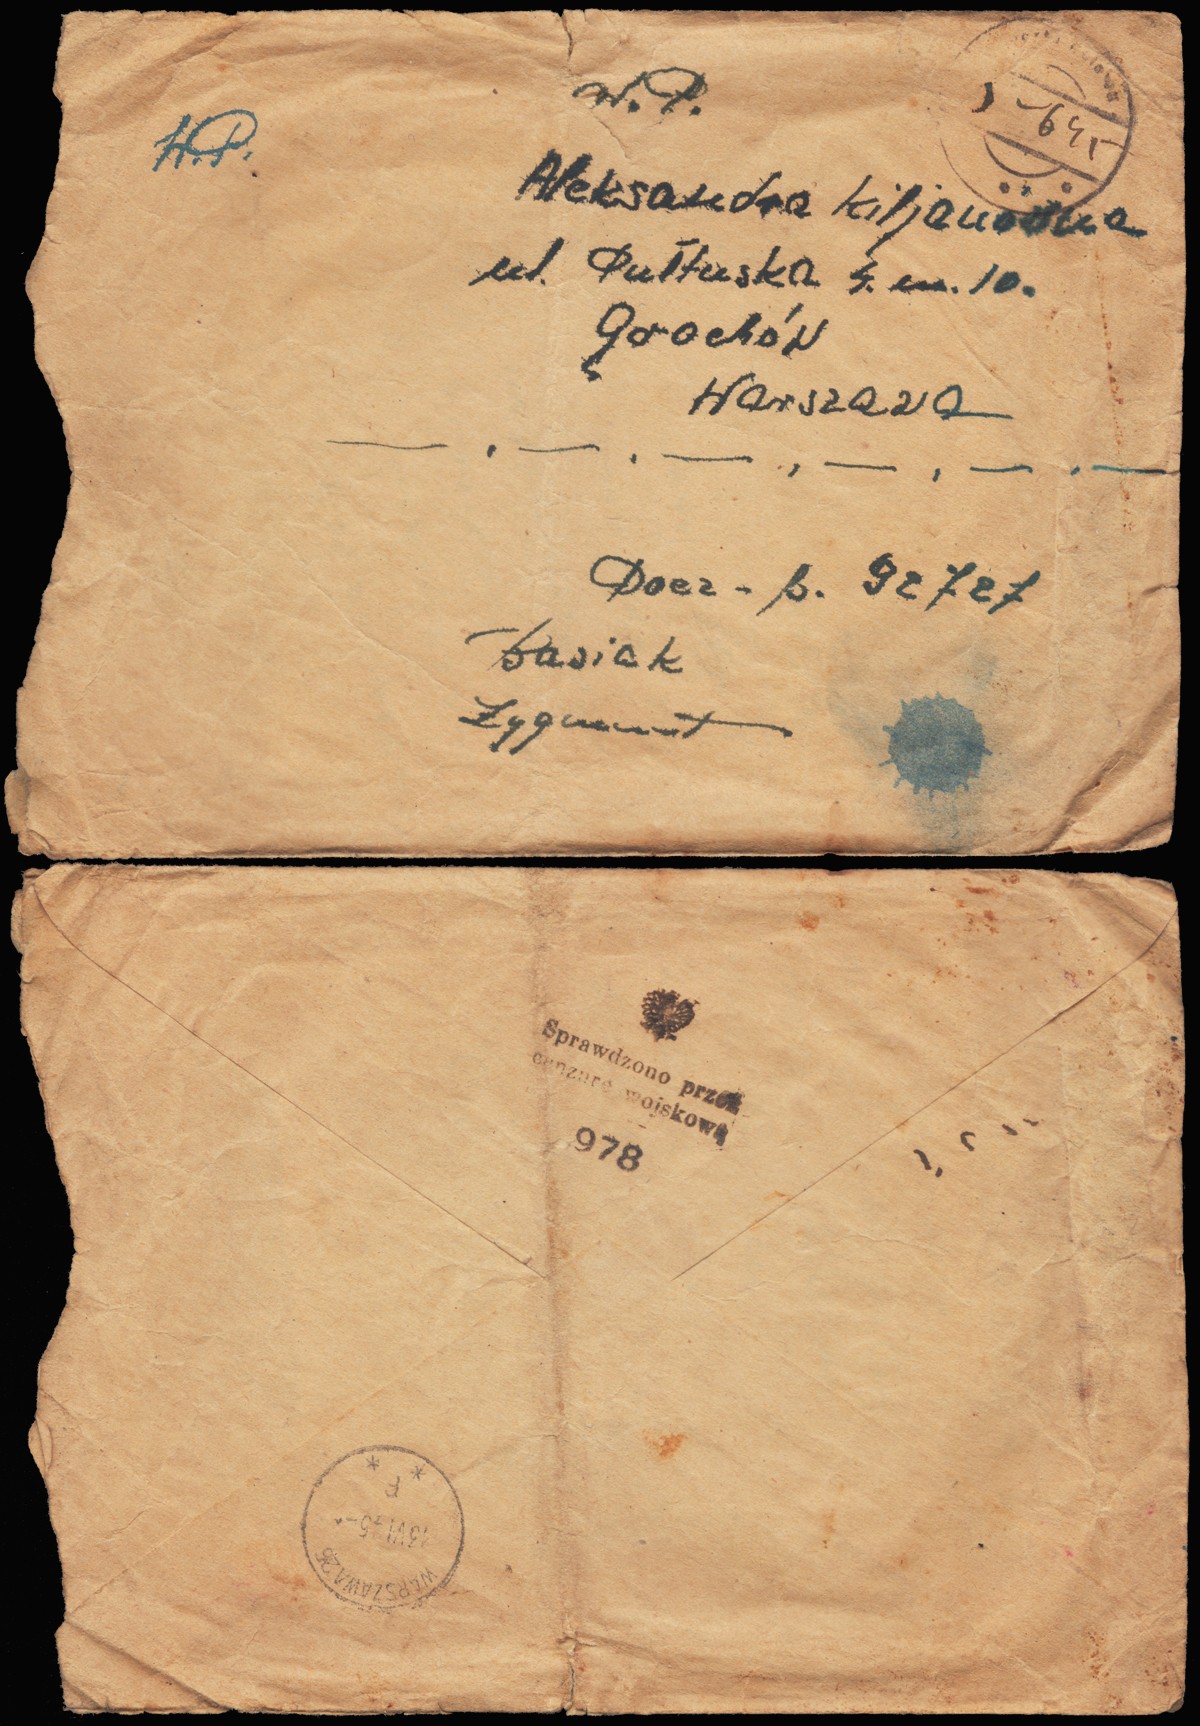 W. P.
H.P.
Aleksandra Kiljanowna
ul. Pułtuska 4. m. 10.
Grochów
Warszawa
Pocz - p. 92727
Basiak
Zygmunt
Sprawdzono przez
cenzurę wojskową
978
F
13 VI 45
WARSZAWA 26